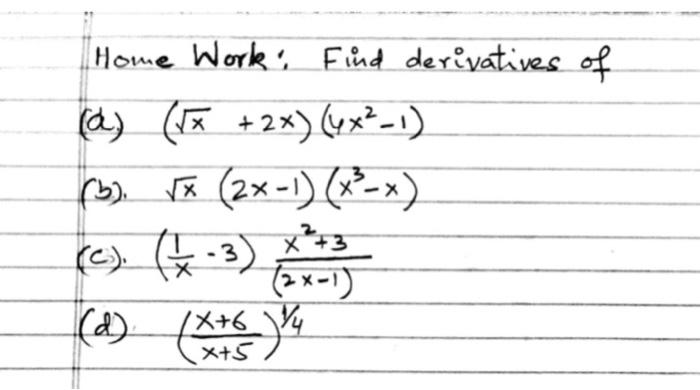 Home Work: Find derivatives of
(a) (√x + 2x) (4x² - 1)
(b). √x (2x - 1) (x³ - x)
(c). (1/x - 3) (x² + 3)/(2x - 1)
(d) ((x + 6)/(x + 5))^(1/4)